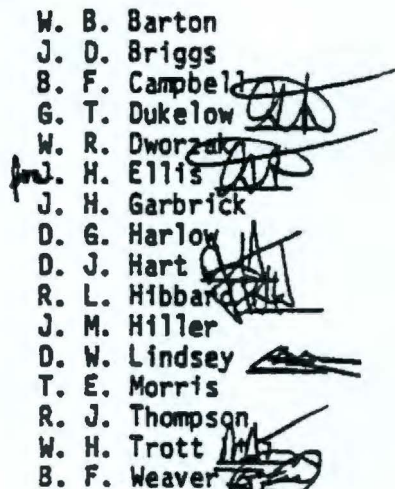 W. B. Barton
J. D. Briggs
B. F. Campbell
G. T. Dukelow
W. R. Dworzak
for J. H. Ellis
J. H. Garbrick
D. G. Harlow
D. J. Hart
R. L. Hibbard
J. M. Hiller
D. W. Lindsey
T. E. Morris
R. J. Thompson
W. H. Trott
B. F. Weaver